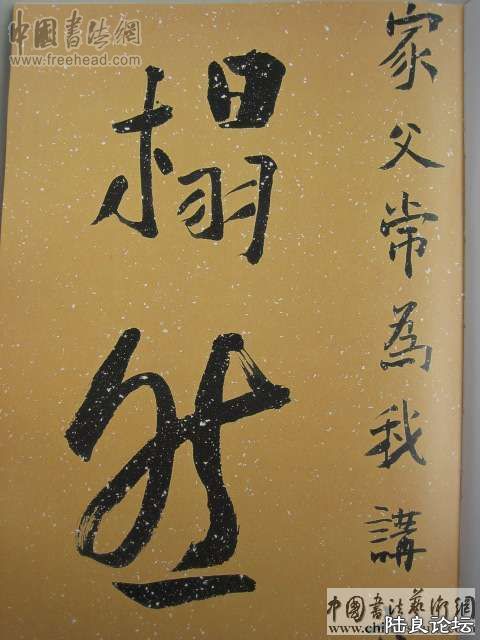 家父常為我講
榻然
中國書法網
www.freehead.com
中國書法藝術網
陆良论坛